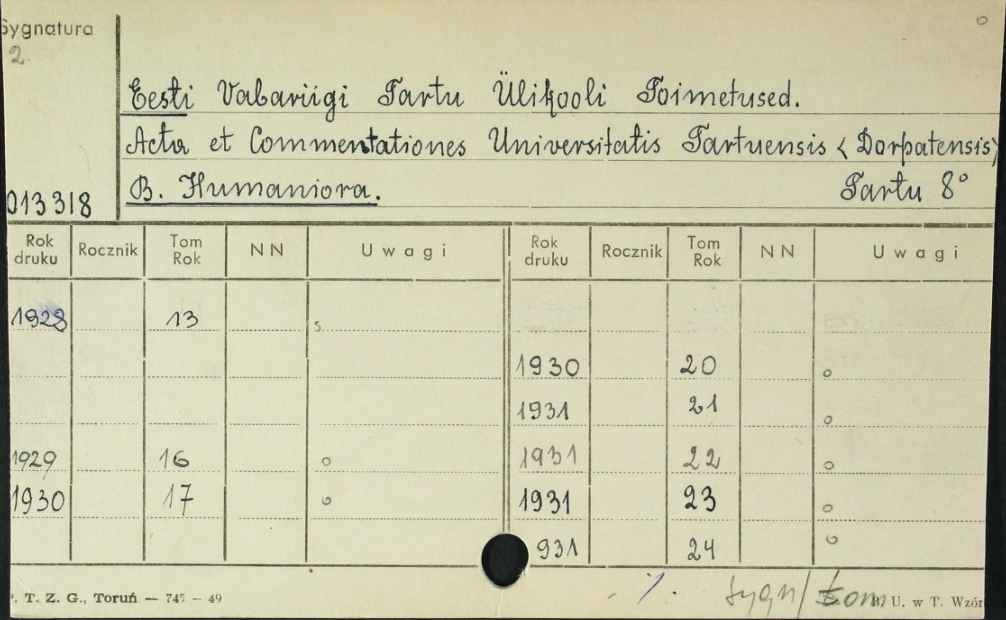 Sygnatura
2.
Eesti Vabariigi Tartu Ülikooli Toimetused.
Acta et Commentationes Universitatis Tartuensis <Dorpatensis>
B. Humaniora. Tartu 8°
013318
Rok druku Rocznik Tom Rok NN Uwagi Rok druku Rocznik Tom Rok NN Uwagi
1928 13 s.
1930 20 o
1931 21 o
1929 16 o 1931 22 o
1930 17 o 1931 23 o
931 24 o
. T. Z. G., Toruń — 747 – 49
sygn/tom U. w T. Wzór